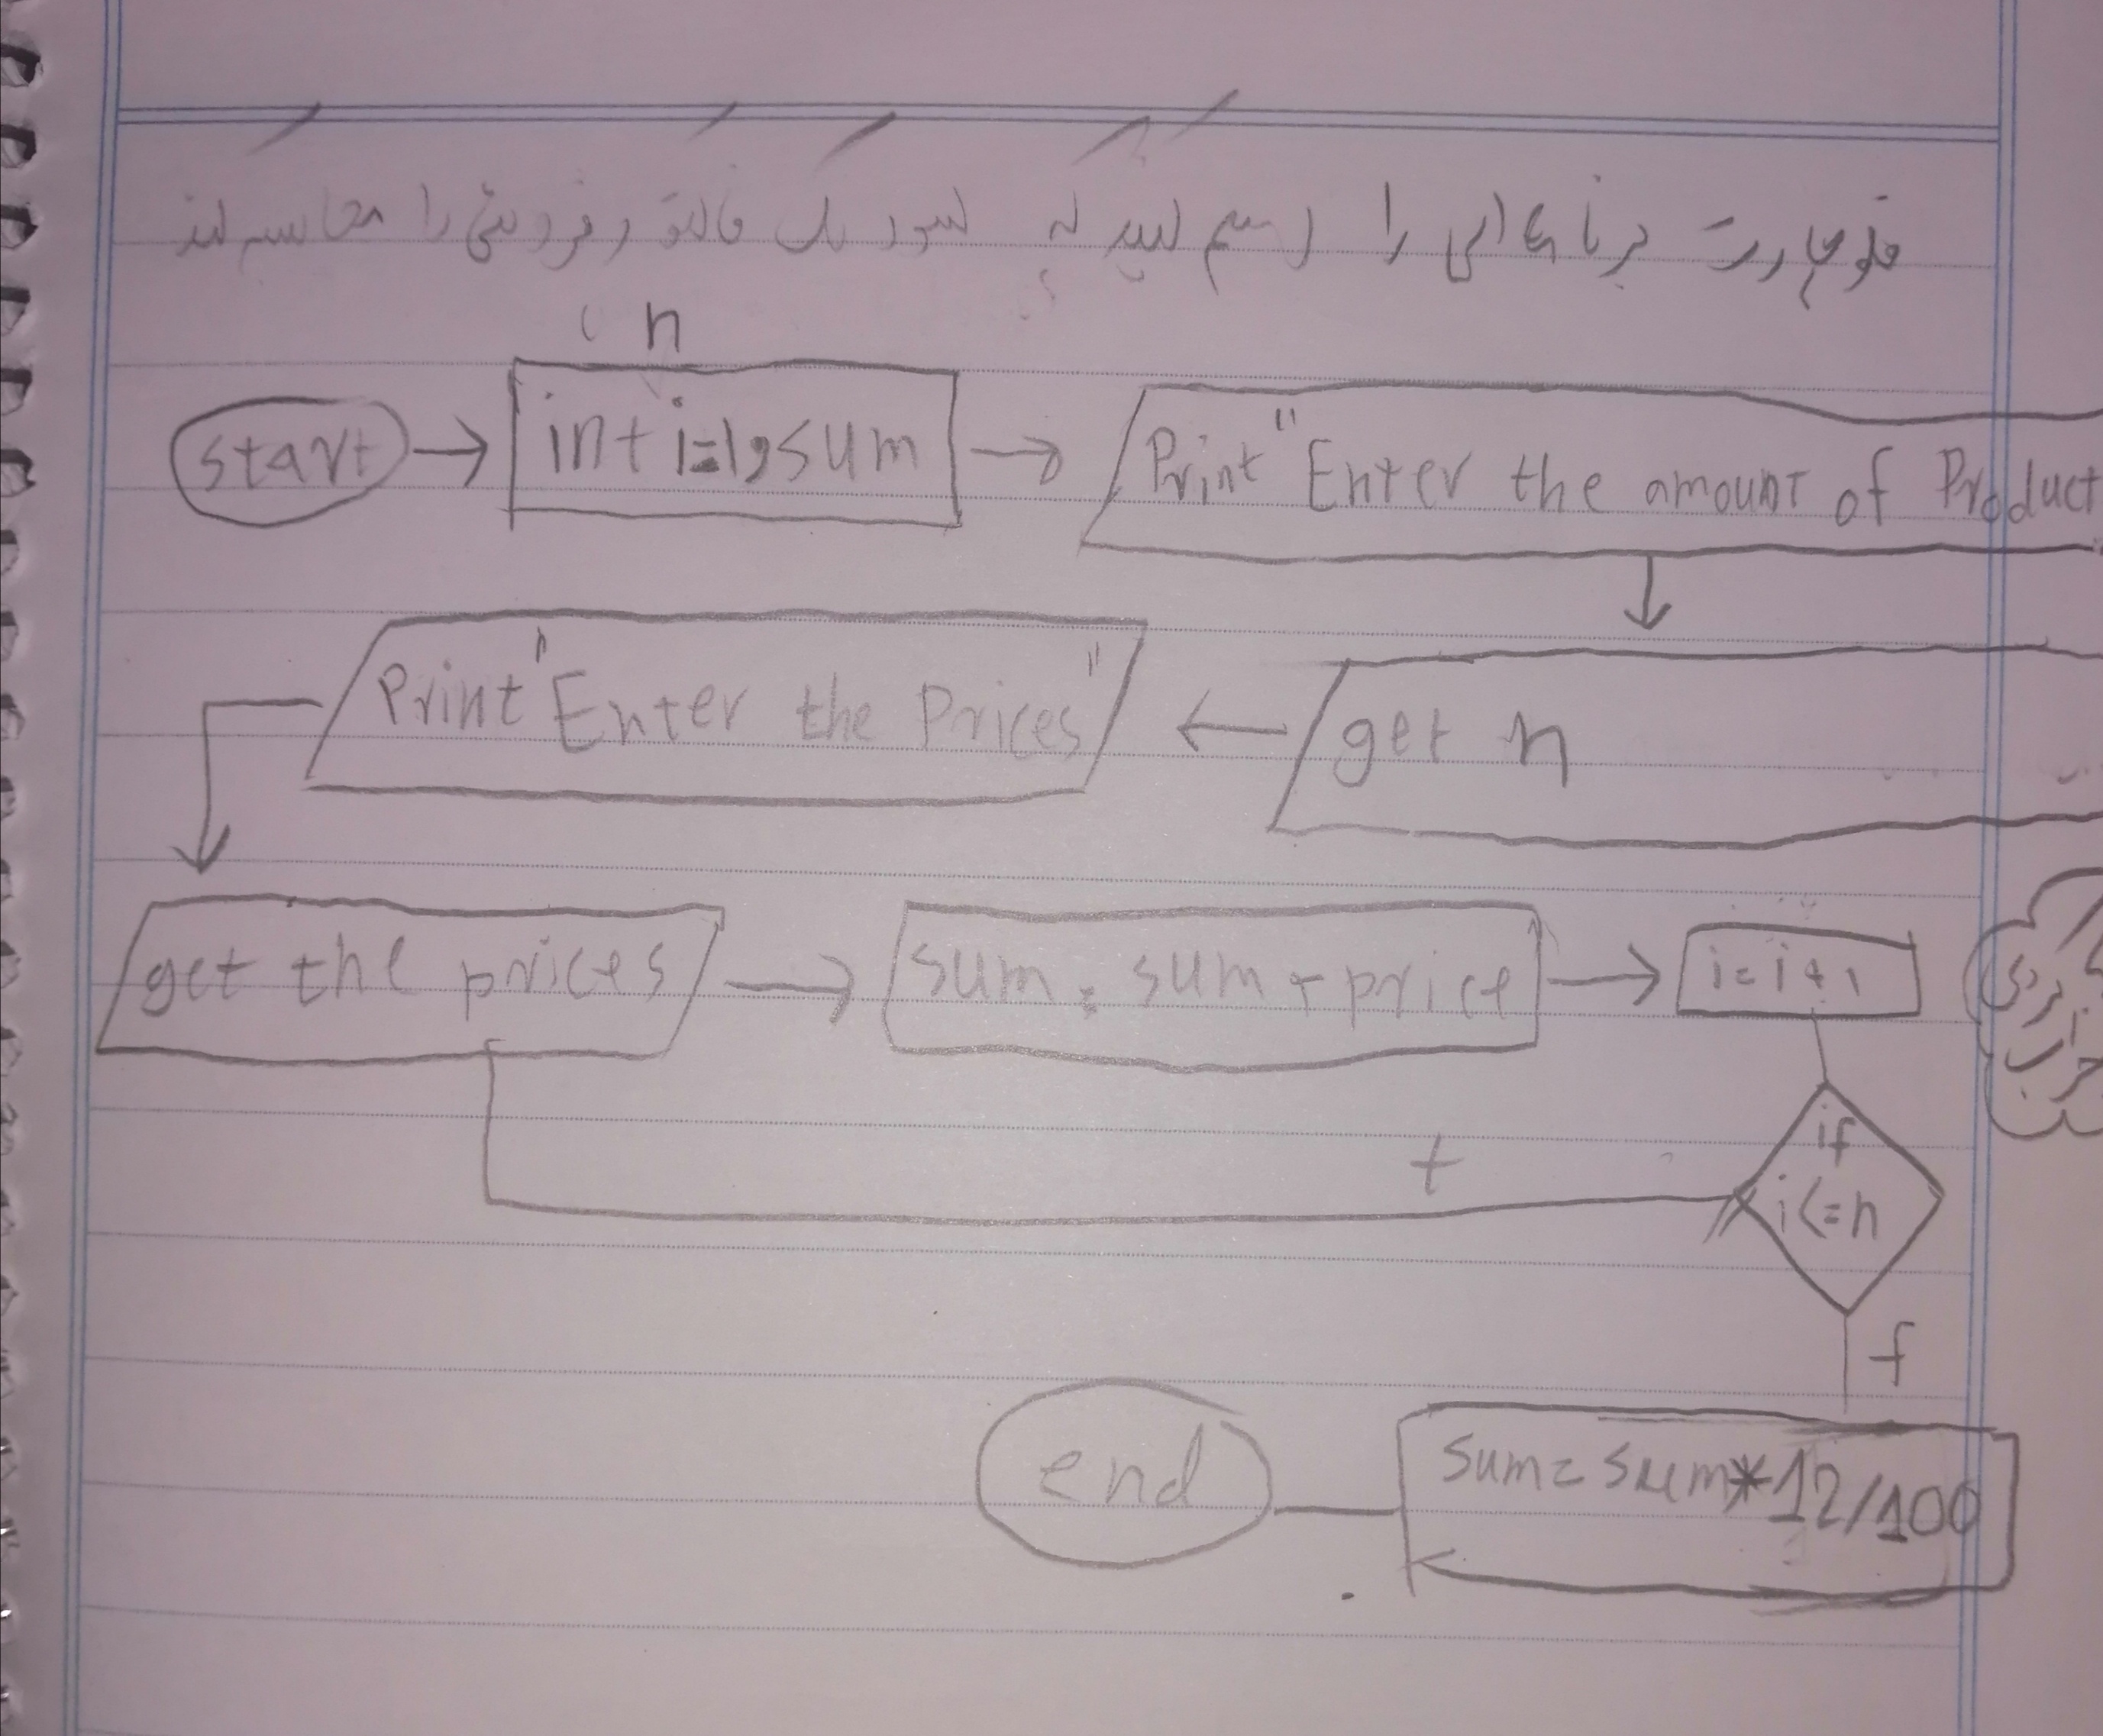 فلوچارت برنامه‌ای را رسم کنید که سود یک فاکتور فروشی را محاسبه کند
n
start
int i=1,sum
Print "Enter the amount of Product
get n
Print "Enter the Prices"
get the prices
sum = sum + price
i=i+1
if
i<=n
t
f
sum=sum*12/100
end